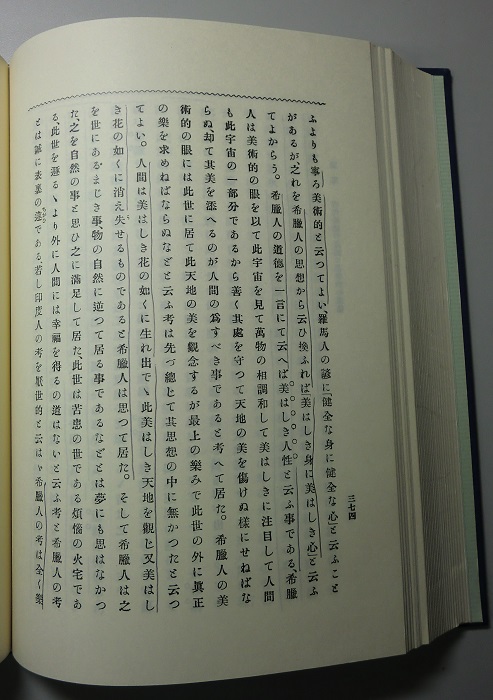 三七四
ふよりも寧ろ美術的と云つてよい、羅馬人の諺に健全な身に健全な心と云ふこと
があるが、之れを希臘人の思想から云ひ換ふれば美はしき身に美はしき心と云ふ
てよからう。希臘人の道德を一言にて云へば美はしき人性と云ふ事である、希臘
人は美術的の眼を以て此宇宙を見て萬物の相調和して美はしきに注目して人間
も此宇宙の一部分であるから善く其處を守つて天地の美を傷けぬ樣にせねばな
らぬ、却て其美を添へるのが人間の爲すべき事であると考へて居た。希臘人の美
術的の眼には此世に居て此天地の美を觀念するが最上の樂みで此世の外に眞正
の樂を求めねばならぬなどと云ふ考は先づ總じて其思想の中に無かつたと云つ
てよい。人間は美はしき花の如くに生れ出でゝ此美はしき天地を觀じ又美はし
き花の如くに消え失せるものであると希臘人は思つて居た。そして希臘人は之
を世にあるまじき事物の自然に逆つて居る事であるなどとは夢にも思はなかつ
た、之を自然の事と思ひ之に滿足して居た。此世は苦患の世である煩惱の火宅であ
る、此世を遁るゝより外に人間には幸福を得るの道はないと云ふ考と希臘人の考
とは誠に表裏の違である若し印度人の考を厭世的と云はゞ希臘人の考は全く樂